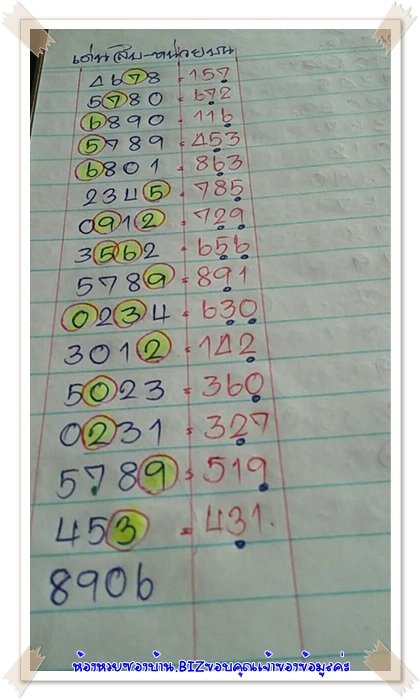 เด่นสิบ-หน่วยบน
4678 = 157
5780 = 672
6890 = 116
5789 = 453
6801 = 863
2345 = 785
0912 = 729
3562 = 656
5789 = 891
0234 = 630
3012 = 142
5023 = 360
0231 = 327
5789 = 519
453 = 431.
8906
ห้องหวยของบ้าน.BIZขอบคุณเจ้าของข้อมูลค่ะ